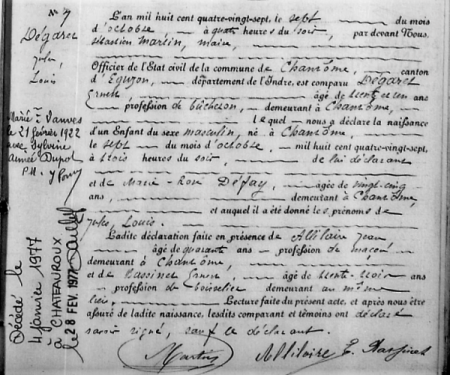 N° 7
Dégaret
Jules,
Louis
Marié à Vanves
le 21 février 1922
avec Sylvine
Aimée Dupot
Décédé le
4 Janvier 1977
à CHATEAUROUX
le 28 FEV. 1977
L'an mil huit cent quatre-vingt-sept, le sept du mois
d'octobre, à quatre heures du soir, par devant Nous,
Sébastien Martin, maire,
Officier de l'Etat civil de la commune de Chantôme, canton
d'Eguzon, département de l'Indre, est comparu Dégaret
Ernest âgé de trente et un ans
profession de bûcheron, demeurant à Chantôme,
lequel nous a déclaré la naissance
d'un Enfant du sexe masculin, né à Chantôme,
le sept du mois d'octobre, mil huit cent quatre-vingt-sept,
à trois heures du soir, de lui déclarant
et de Marie Rose Défay, âgée de vingt-cinq
ans, demeurant à Chantôme,
et auquel il a été donné les prénoms de
Jules, Louis.
Ladite déclaration faite en présence de Allilaire Jean
âgé de quarante ans profession de maçon
demeurant à Chantôme,
et de Massinet Ernest, âgé de trente-trois ans
profession de boisselier demeurant au même
lieu, Lecture faite du présent acte, et après nous être
assuré de ladite naissance, lesdits comparant et témoins ont déclaré
savoir signé, sauf le déclarant.
Martin Allilaire E. Massinet